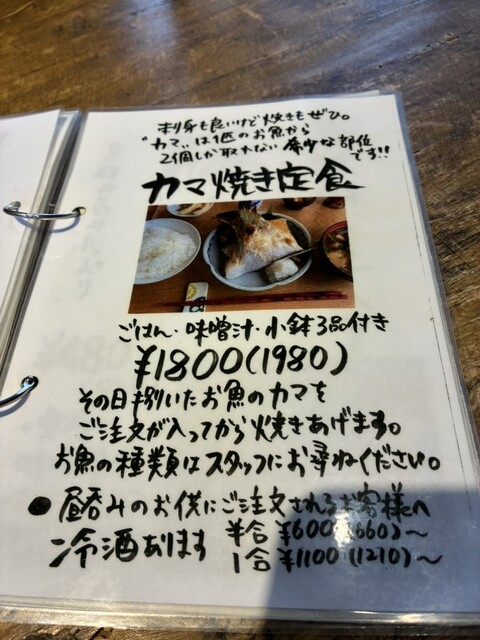 刺身も良いけど焼きもぜひ。
"カマ"は1匹のお魚から
2個しか取れない希少な部位
です!!
カマ焼き定食
ごはん・味噌汁・小鉢3品付き
¥1800(1980)
その日捌いたお魚のカマを
ご注文が入ってから焼きあげます。
お魚の種類はスタッフにお尋ねください。
●昼呑みのお供にご注文されるお客様へ
冷酒あります 半合 ¥600(660)～
1合 ¥1100(1210)～